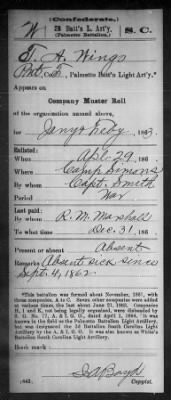 (Confederate.)
W 3 Batt's L. Art'y. S. C.
(Palmetto Batt'n.)
T. A. Wings
Pvt, Palmetto Batt'n Light Art'y.*
Appears on
Company Muster Roll
of the organization named above,
for Jany & Feby, 1863.
Enlisted:
When Apl. 29, 186
Where Camp Simons
By whom Capt. Smith
Period War
Last paid:
By whom R. M. Marshall
To what time Dec. 31, 186
Present or absent Absent
Remarks: Absent sick since
Sept. 4, 1862.
*This battalion was formed about November, 1861, with
three companies, A to C. Seven other companies were added
at various times, the last about June 21, 1862. Companies
H, I and K, not being legally organized, were disbanded by
S. O. No. 77, A. & I. G. O., dated April 1, 1864. It was
known in the field as the Palmetto Battalion Light Artillery,
but was designated 3d Battalion South Carolina Light
Artillery by the A. & I. G. O. It was also known as White's
Battalion South Carolina Light Artillery.
Book mark:
S. A. Boyd
(642) Copyist.